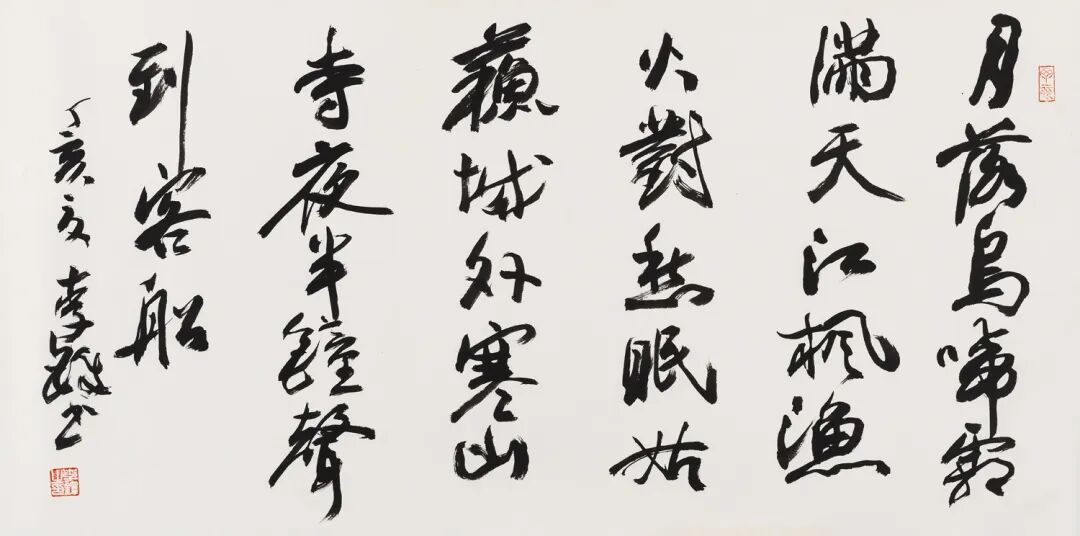 月落烏啼霜
滿天江楓漁
火對愁眠姑
蘇城外寒山
寺夜半鐘聲
到客船
丁亥夏 李 書